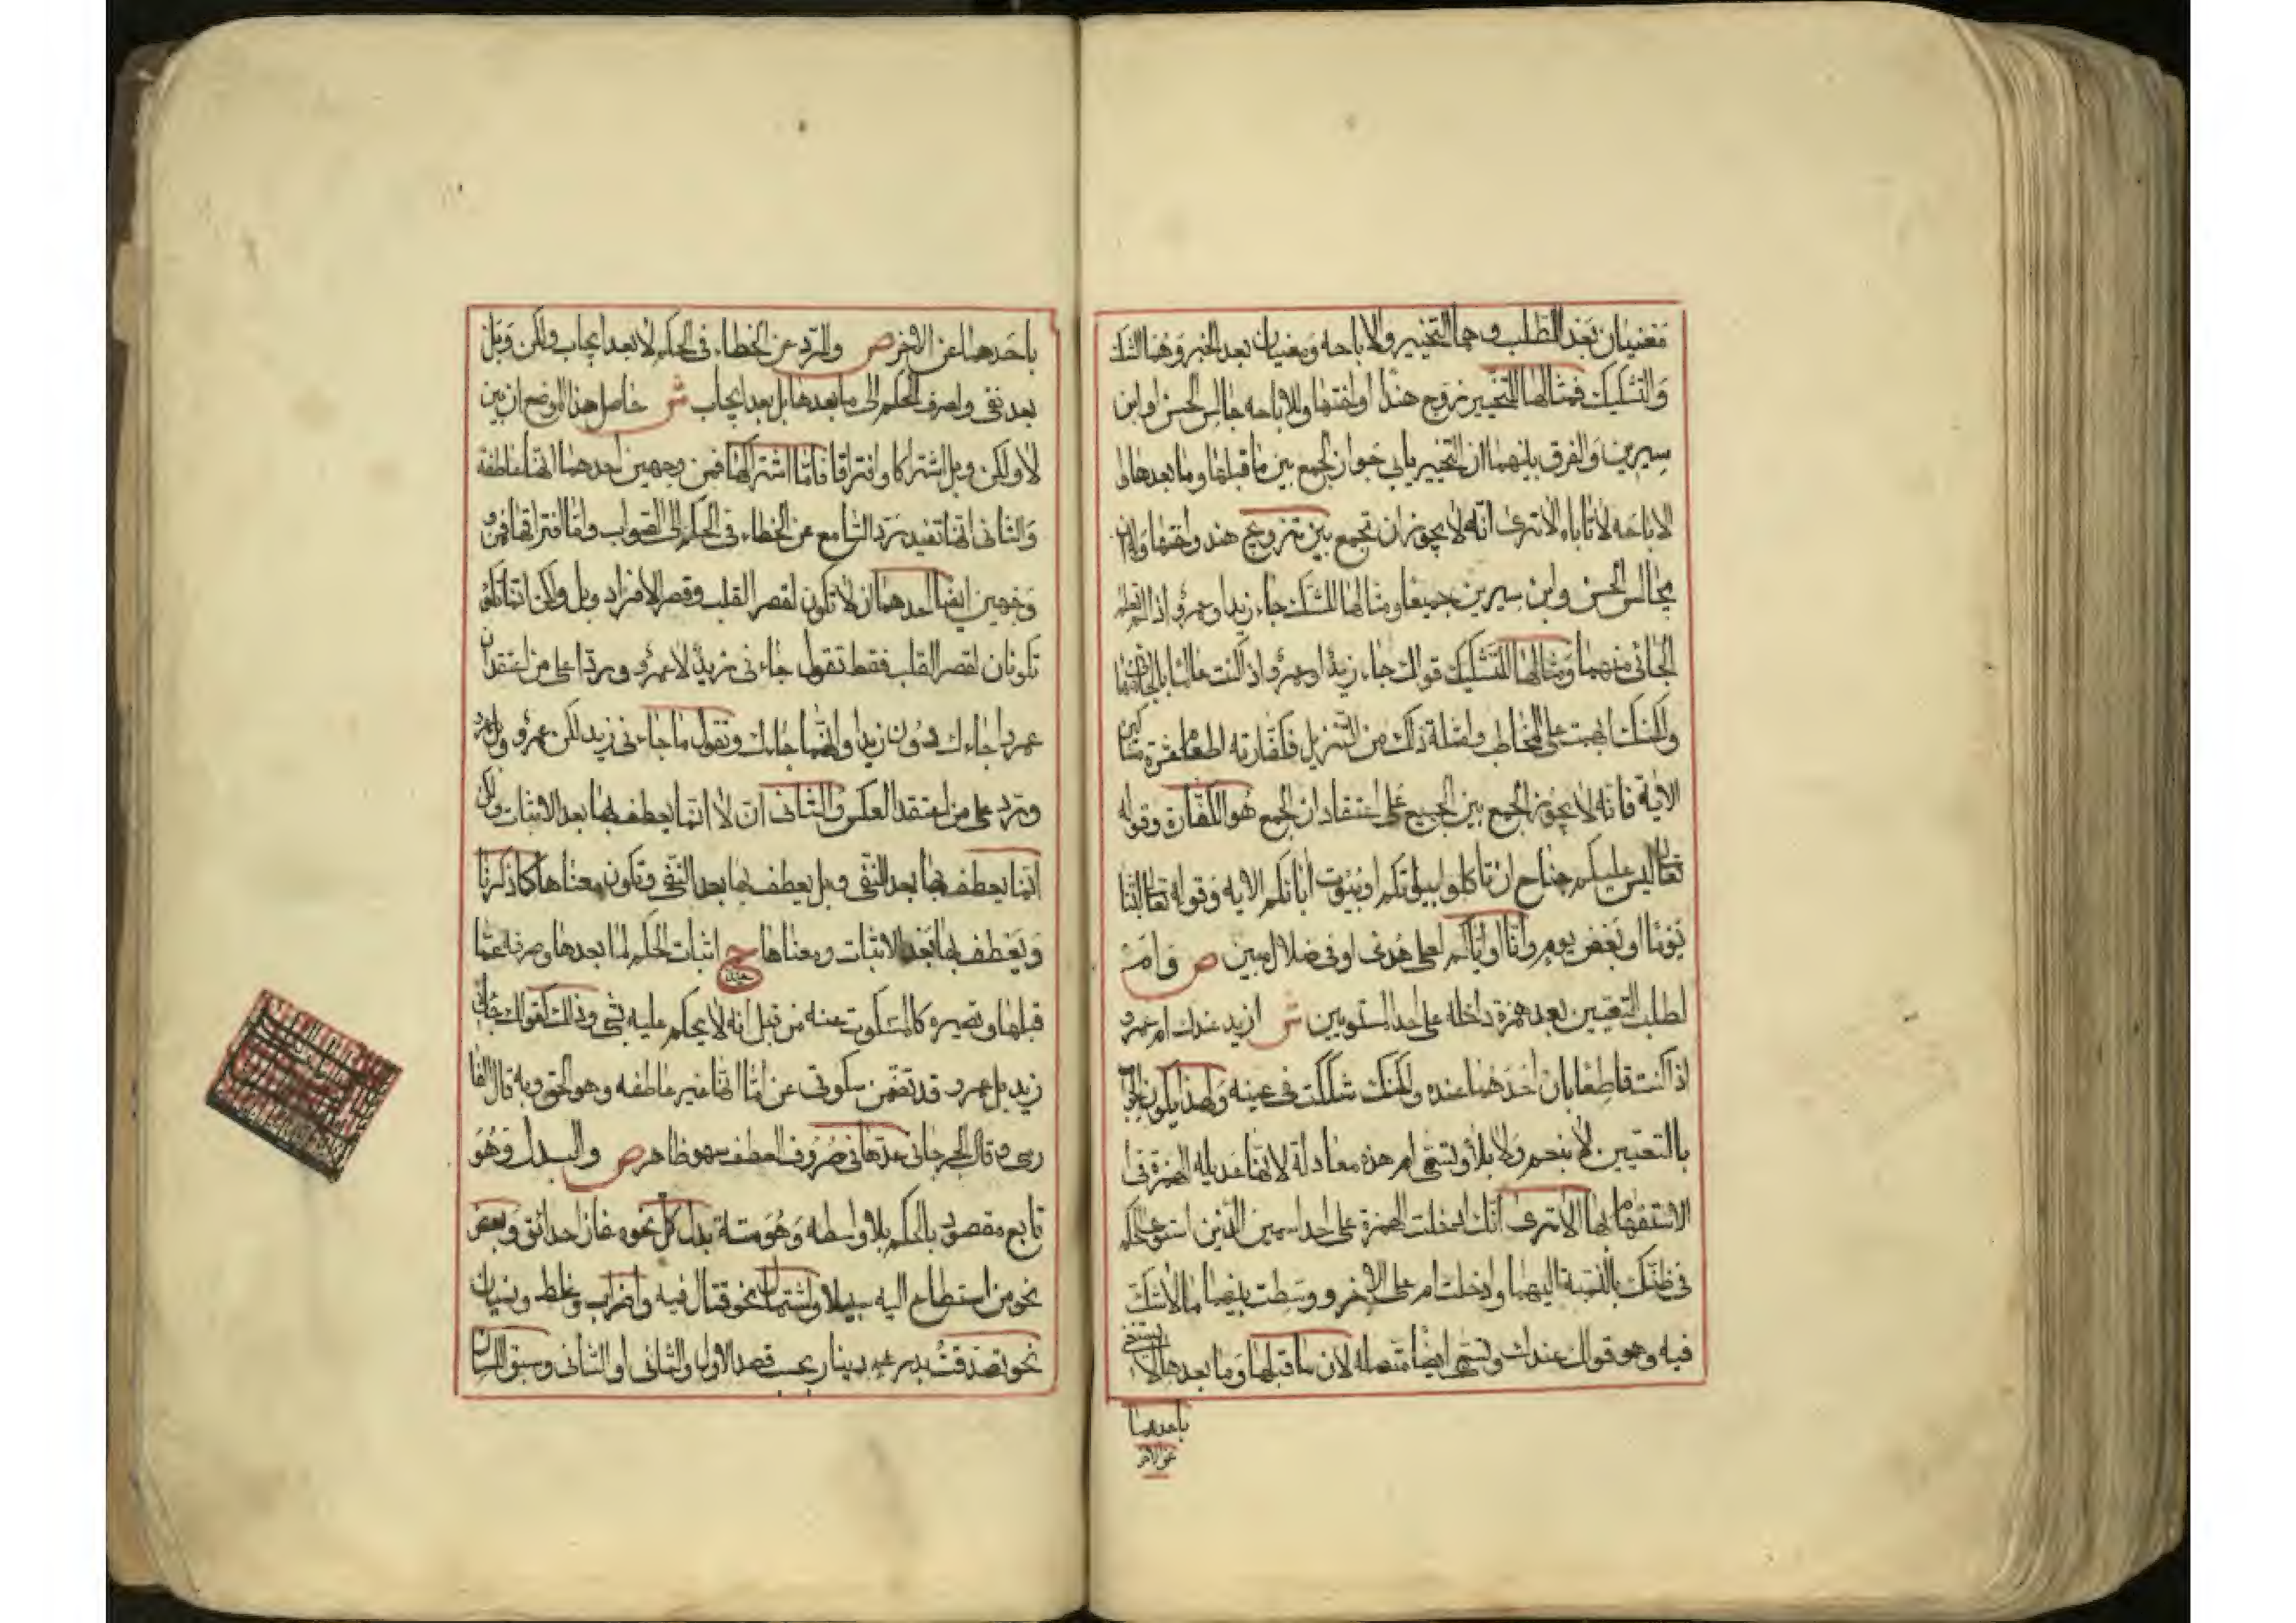 مَعنَيان بَعْد الطلب وهما التخيير والاباحه ومعنيان بعد الخبر وهما الشك
والتشكيك فمثالها للتخيير تزوج هندا او اختها وللاباحه جالس الحسن او ابن
سيرين والفرق بينهما ان التخيير يابى جواز الجمع بين ما قبلها وما بعدها والا
الاباحه لا تاباه الا ترى انه لا يجوز ان تجمع بين تزوج هند واختها وله ان
يجالس الحسن وابن سيرين جميعا ومثالها للشك جاء زيد او عمرو اذا لم تعلم
الجائى منهما ومثالها للتشكيك قولك جاء زيد او عمرو اذا كنت عالما بالجائى منهما
ولكنك ابهمت على المخاطب وامثلة ذلك من التنزيل فكفارته اطعام عشرة مساكين
الاية فانه لا يجوز الجمع بين الجميع على اعتقاد ان الجمع هو الكفارة وقوله
تعالى ليس عليكم جناح ان تاكلوا من بيوتكم او بيوت ابائكم الايه وقوله تعالى لبثنا
يوما او بعض يوم وانا او اياكم لعلى هدى او فى ضلال مبين ص وام
لطلب التعيين بعد همزة داخله على احد المستويين ش ازيد عندك ام عمرو
اذا كنت قاطعا بان احدهما عنده ولكنك شككت فى عينه ولهذا يكون الجواب
بالتعيين لا بنعم ولا بلا وتسمى ام هذه معادلة لانها عديله الهمزة فى
الاستفهام بها الا ترى انك ادخلت الهمزة على احد اسمين الذين استوى الحكم
فى ظنك بالنسبة اليهما وادخلت ام على الاخر ووسطت بينهما ما لا تشك
فيه وهو قولك عندك وتسمى ايضا متصله لان ما قبلها وما بعدها لا يستغنى
باحدهما
عن الاخر
باحدهما عن الاخر ص وللرد عن الخطاء فى الحكم لا بعد ايجاب ولكن وبل
بعد نفى ولصرف الحكم الى ما بعدها بل بعد ايجاب ش حاصل هذا الموضع ان بين
لا ولكن وبل اشتراكا وافتراقا فاما اشتراكها فمن وجهين احدهما انها عاطفه
والثانى انها تفيد رد السامع عن الخطاء فى الحكم الى الصواب واما افتراقها فمن
وجهين ايضا احدهما ان لا تكون لقصر القلب وقصر الافراد وبل ولكن انما
تكونان لقصر القلب فقط تقول جاءنى زيد لا عمرو ردا على من اعتقد ان
عمرا جاءك دون زيد او انهما جاءك وتقول ما جاءنى زيد لكن عمرو وبل عمرو
وترد على من اعتقد العكس والثانى ان لا انما يعطف بها بعد الاثبات ولكن
انما يعطف بها بعد النفى وبل يعطف بها بعد النفى وتكون معناها كما ذكرنا
ويعطف بها بعد الاثبات ومعناها ح اثبات الحكم لما بعدها وصرفه عما
قبلها وتصيره كالمسكوت عنه من قبل انه لا يحكم عليه بشى وذلك كقولك جاءنى
زيد بل عمرو قد تضمن سكوتى عن اما انها غير عاطفه وهو الحق وبه قال الفا
رسى وقال الجرجانى عدها فى حروف العطف سهو ظاهر ص والبدل وهو
تابع مقصود بالحكم بلا واسطه وهو ستة بدل كل نحوه مفازا حدائق وبعض
نحو من استطاع اليه سبيلا واشتمال نحو قتال فيه واضراب وغلط ونسيان
نحو تصدقت بدرهم دينار بحسب قصد الاول والثانى او الثانى وسبق اللسان